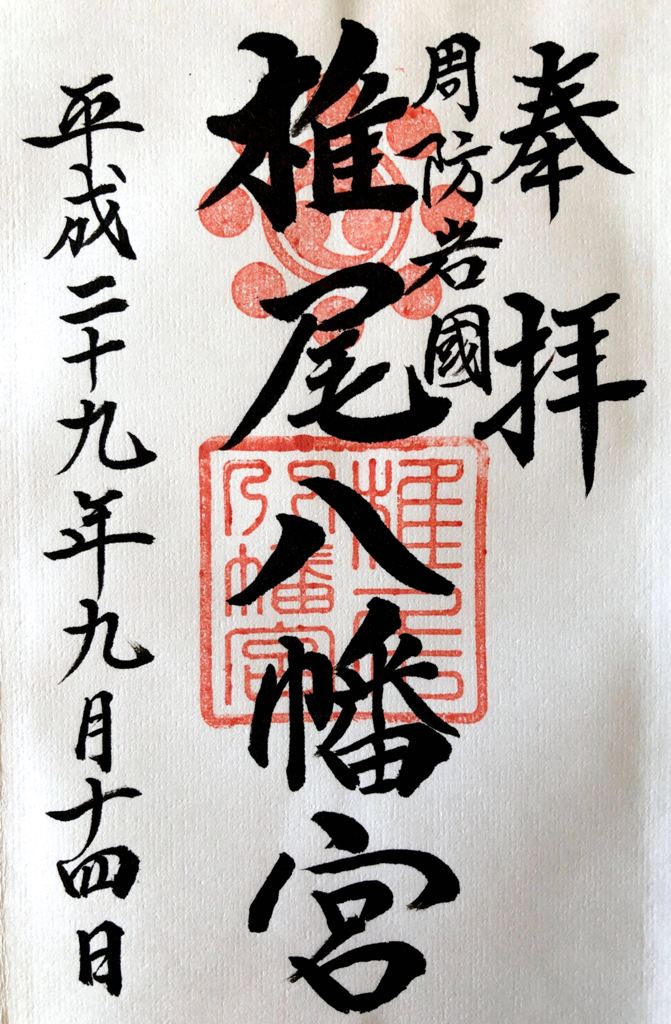 奉拝
周防岩國
椎尾八幡宮
平成二十九年九月十四日
椎尾
八幡宮